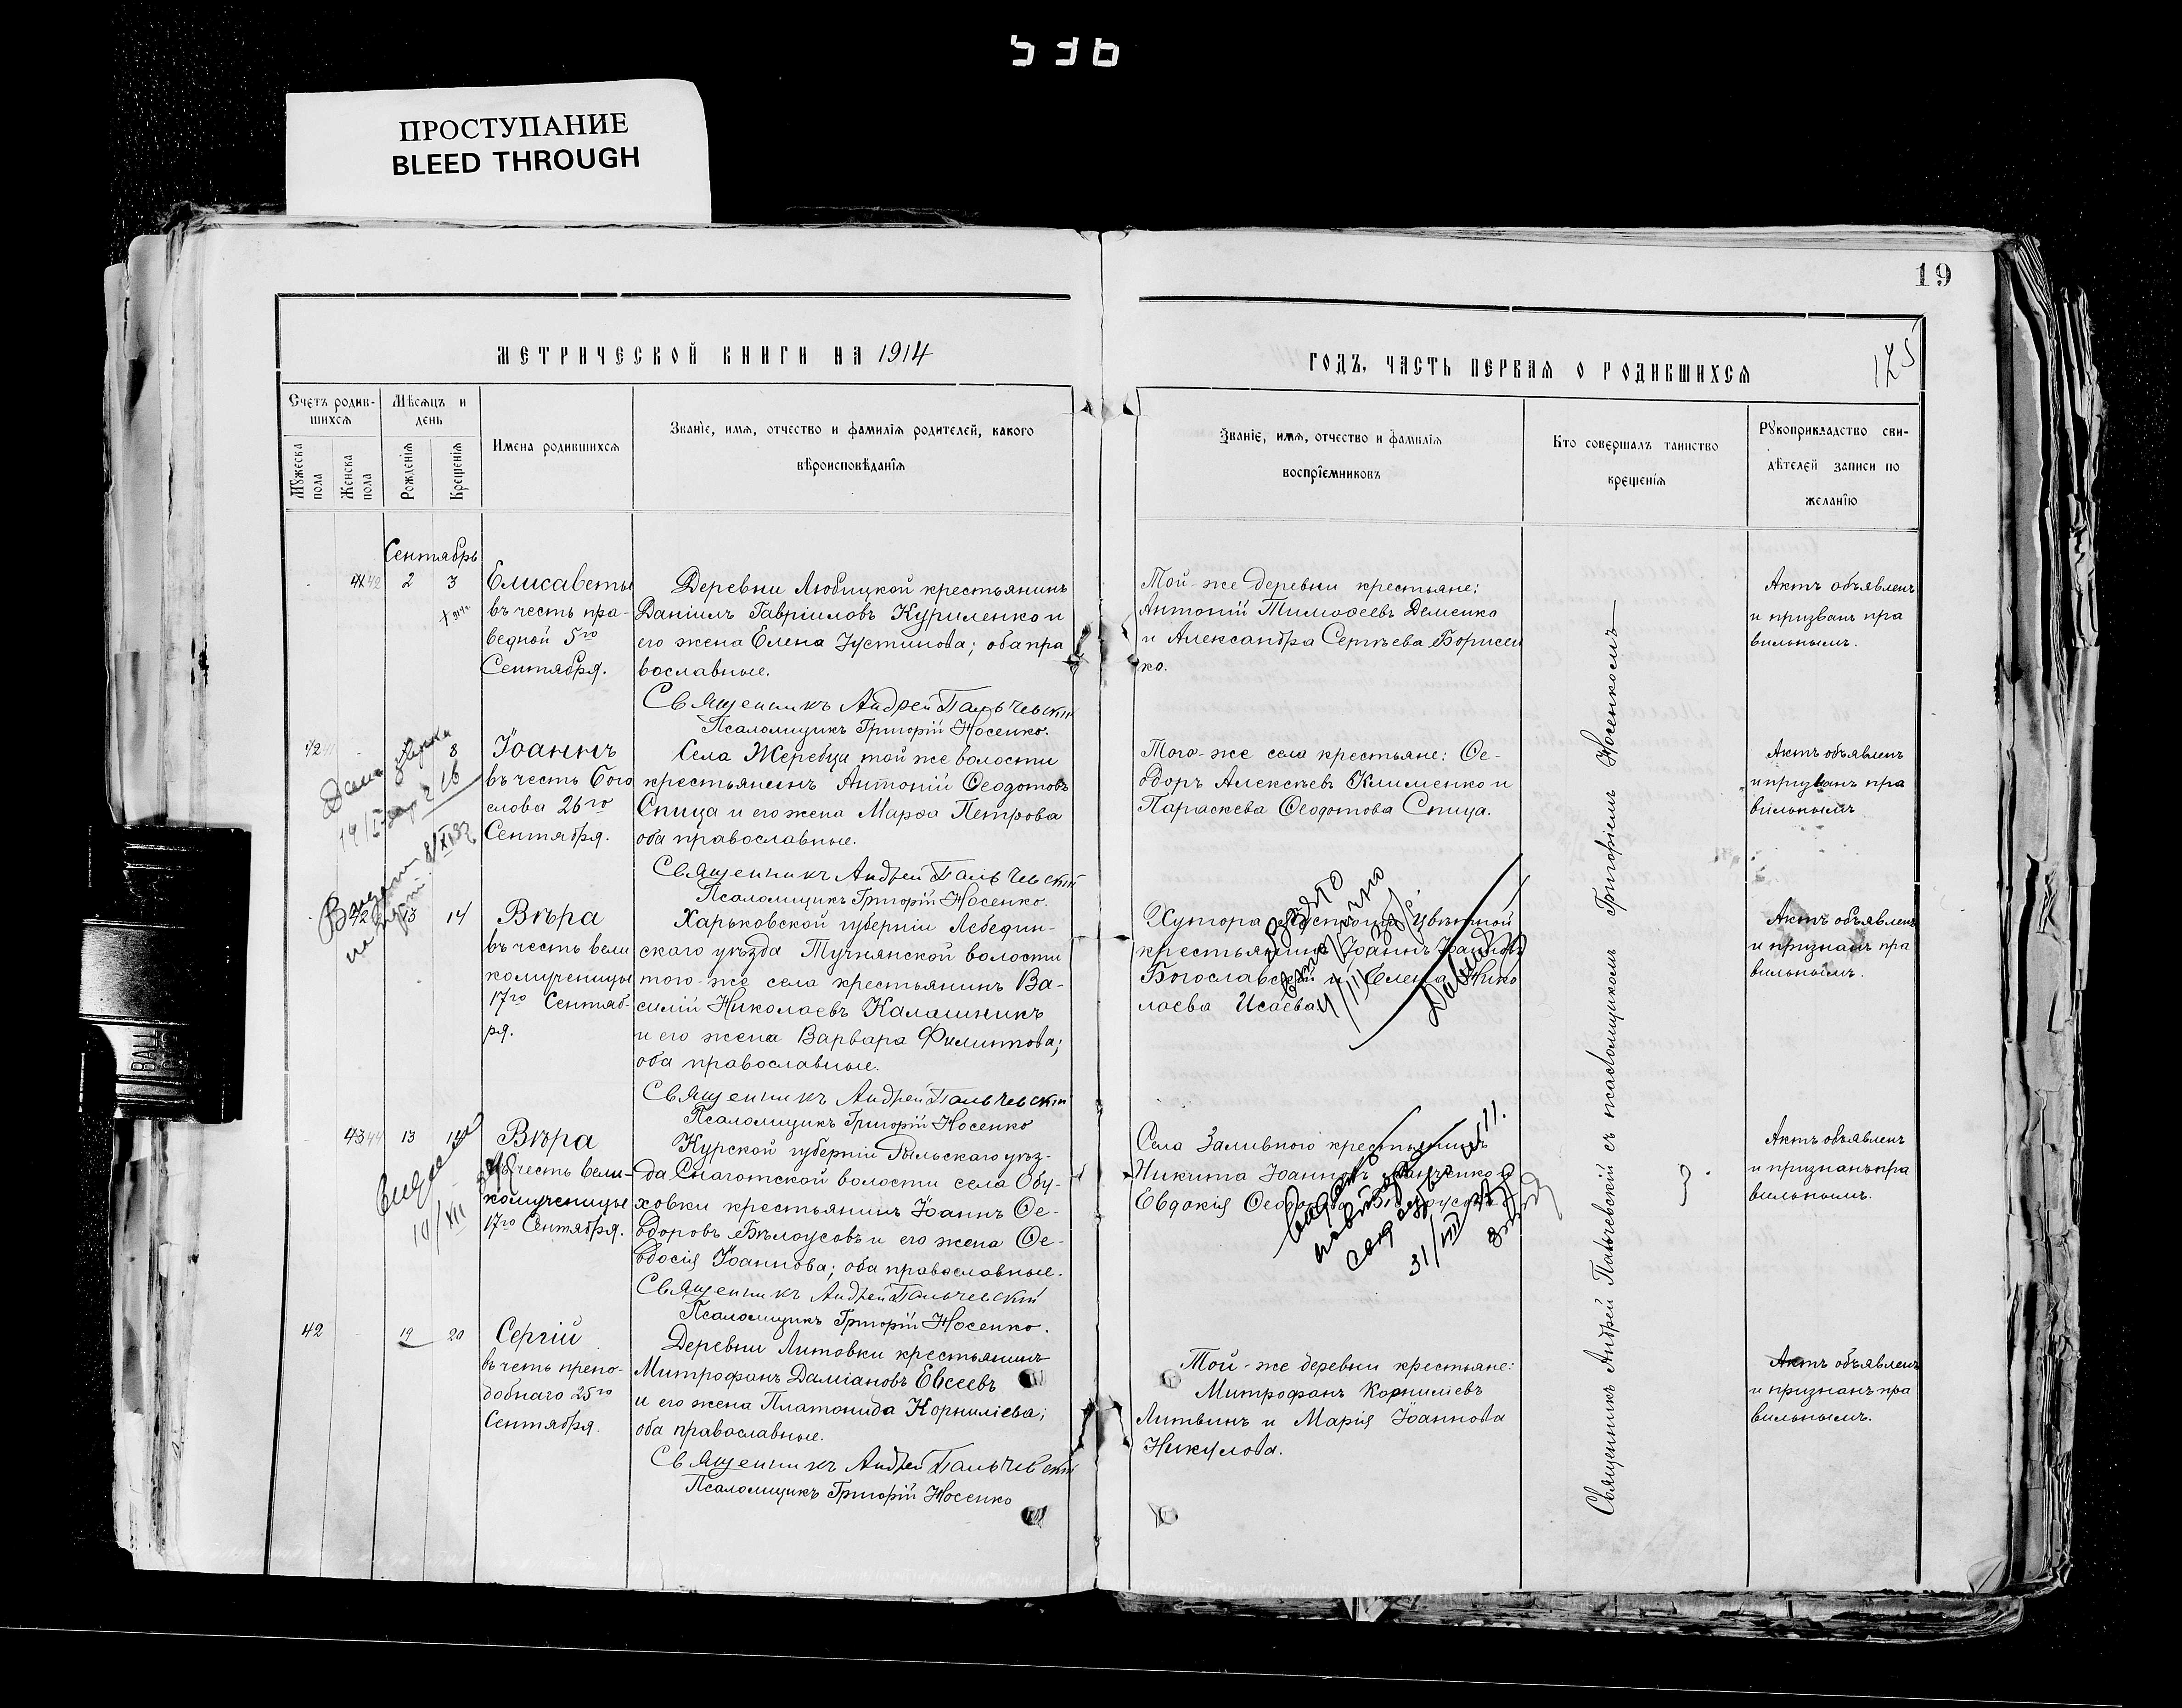 536
ПРОСТУПАНИЕ
BLEED THROUGH
19
125
МЕТРИЧЕСКОЙ КНИГИ НА 1914
ГОДЪ, ЧАСТЬ ПЕРВАЯ О РОДИВШИХСЯ
Счетъ родив-
шихся
Мужеска
пола
Женска
пола
Мѣсяцъ и
день
Рожденія
Крещенія
Имена родившихся
Званіе, имя, отчество и фамилія родителей, какого
вѣроисповѣданія
Званіе, имя, отчество и фамилія
воспріемниковъ
Кто совершалъ таинство
крещенія
Рукоприкладство сви-
дѣтелей записи по
желанію
Сентябрь
42 2 3
Елисаветы
въ честь пра-
ведной 5го
Сентября.
Деревни Любицкой крестьянинъ
Даніилъ Гавріиловъ Куриленко и
его жена Елена Іустинова; оба пра
вославные.
Священникъ Андрей Пальчевскій
Псаломщикъ Григорій Носенко.
Той-же деревни крестьяне:
Антоній Тимоѳеевъ Деменко
и Александра Сергѣева Борисен
ко.
Актъ объявленъ
и призванъ пра
вильнымъ.
42 8
Іоаннъ
въ честь Бого
слова 26го
Сентября.
Села Жеребца той же волости
крестьянинъ Антоній Ѳеодотовъ
Спица и его жена Марѳа Петрова
оба православные.
Священникъ Андрей Пальчевскій
Псаломщикъ Григорій Носенко.
Того-же села крестьяне: Ѳе-
одоръ Алексѣевъ Клименко и
Параскева Ѳеодотова Спица.
Актъ объявленъ
и призванъ пра
вильнымъ
42 13 14
Вѣра
въ честь вели
комученицы
17го Сентяб-
ря.
Харьковской губерніи Лебедин-
скаго уѣзда Тучнянской волости
того-же села крестьянинъ Ва-
силій Николаевъ Калашникъ
и его жена Варвара Филиппова;
оба православные.
Священникъ Андрей Пальчевскій
Псаломщикъ Григорій Носенко
Хутора Цвѣтной
крестьянинъ Іоаннъ Іоанновъ
Богославскій и Елена Нико
лаева Исаева.
Актъ объявленъ
и признанъ пра
вильнымъ.
43 44 13 14
Вѣра
въ честь вели-
комученицы
17го Сентября.
Курской губерніи Рыльскаго уѣз-
да Снаготской волости села Обу-
ховки крестьянинъ Іоаннъ Ѳе-
одоровъ Бѣлоусовъ и его жена Ѳе-
одосія Іоаннова; оба православные.
Священникъ Андрей Пальчевскій
Псаломщикъ Григорій Носенко.
Села Заливного крестьянинъ
Никита Іоанновъ
Евдокія
Актъ объявленъ
и признанъ пра
вильнымъ.
42 19 20
Сергій
въ честь препо-
добнаго 25го
Сентября.
Деревни Литовки крестьянинъ
Митрофанъ Даміановъ Евсеевъ
и его жена Платонида Корниліева;
оба православные.
Священникъ Андрей Пальчевскій
Псаломщикъ Григорій Носенко
Той-же деревни крестьяне:
Митрофанъ Корниліевъ
Литвинъ и Марія Іоаннова
Никулова.
Актъ объявленъ
и признанъ пра
вильнымъ.
Священникъ Андрей Пальчевскій съ псаломщикомъ Григоріемъ Носенкомъ